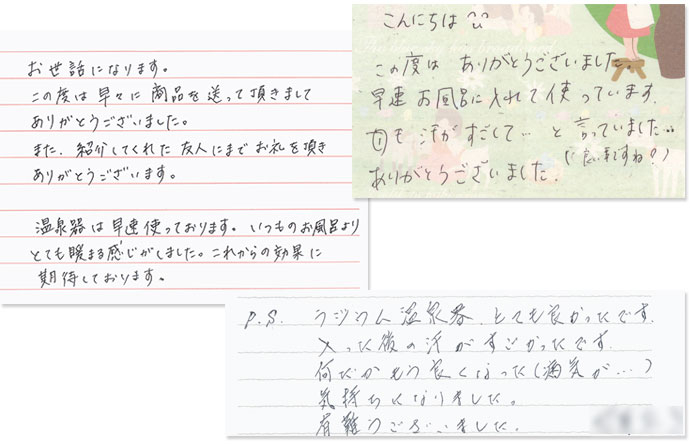 お世話になります。
この度は早々に商品を送って頂きまして
ありがとうございました。
また、紹介してくれた友人にまでお礼を頂き
ありがとうございます。
温泉器は早速使っております。いつものお風呂より
とても暖まる感じがしました。これからの効果に
期待しております。
こんにちは
この度は ありがとうございました。
早速お風呂に入れて使っています。
も 汗がすごくて… と 言っていました
(良いですね?)
ありがとうございました。
P.S. ラジウム温泉器、とても良かったです。
入った後の汗がすごかったです。
何だかもう良くなった(病気が…)
気持ちになりました。
有難うございました。